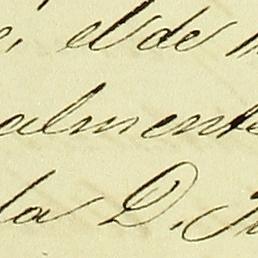 el de
almente
la D.